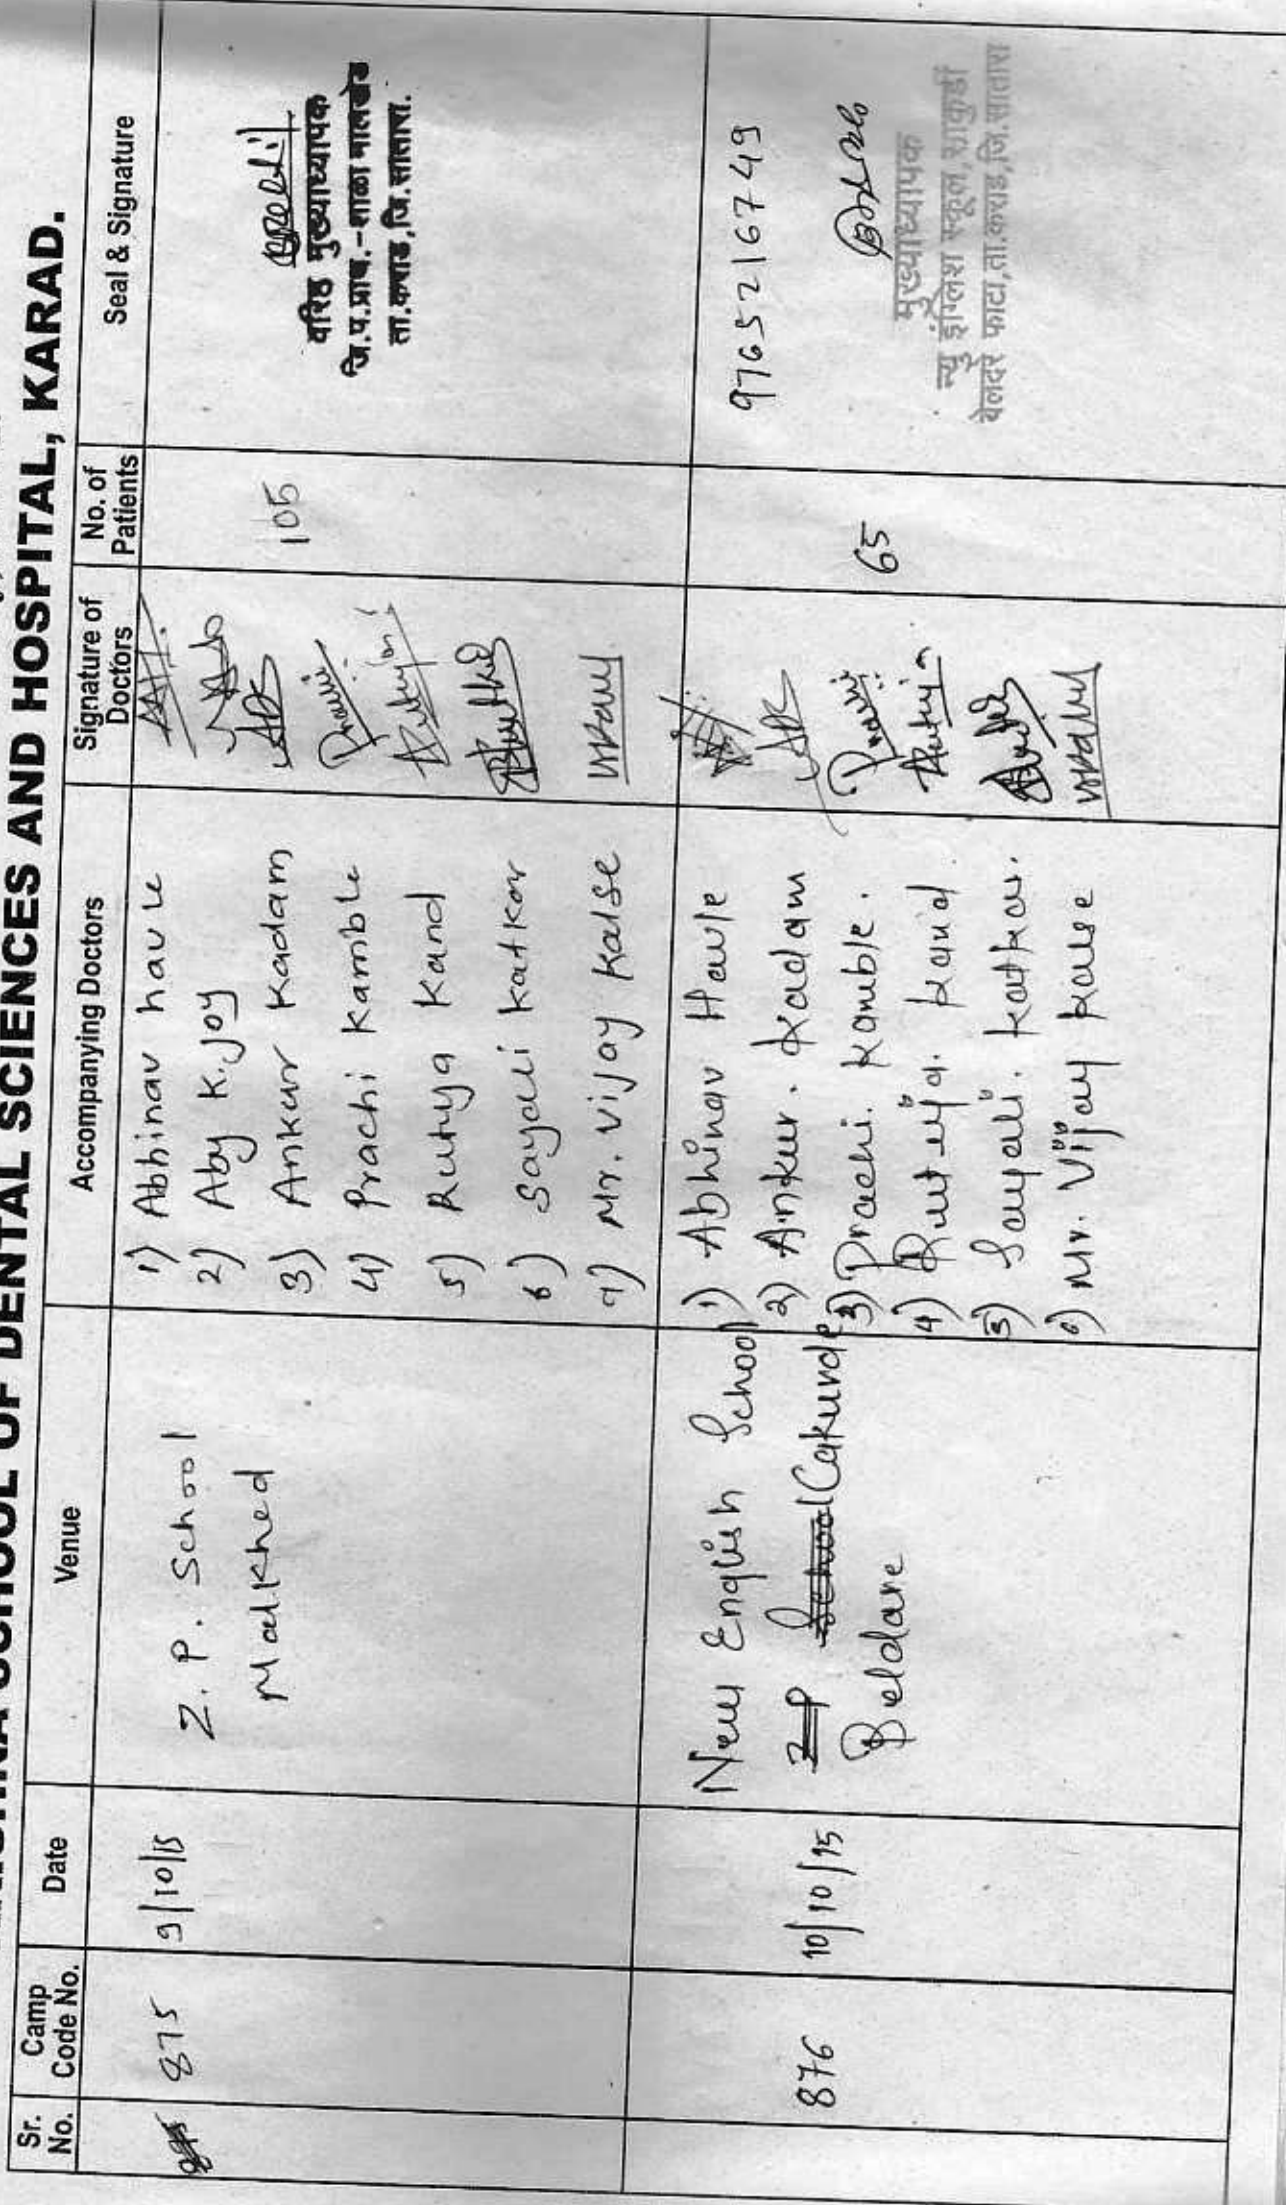 SCHOOL OF DENTAL SCIENCES AND HOSPITAL, KARAD.
Sr. No.
Camp Code No.
Date
Venue
Acccompanying Doctors
Signature of Doctors
No. of Patients
Seal & Signature
875
9/10/15
Z. P. School
Malkhed
1) Abhinav havle
2) Aby K. Joy
3) Ankur Kadam
4) Prachi Kamble
5) Rutuja Kand
6) Sayali Katkar
7) Mr. Vijay Kalse
105
वरिष्ठ मुख्याध्यापक
जि.प.प्राथ.-शाळा मालखेड
ता.कराड,जि.सातारा.
876
10/10/15
New English School
ZP School Cakurde
Beldare
1) Abhinav Havle
2) Ankur. Kadam
3) Prachi. Kamble.
4) Rutuja. Kand
5) Sayali. Katkar.
6) Mr. Vijay Kalse
65
9765216749
मुख्याध्यापक
न्यु इंग्लिश स्कूल, साकुर्डी
बेलदरे फाटा,ता.कराड,जि.सातारा